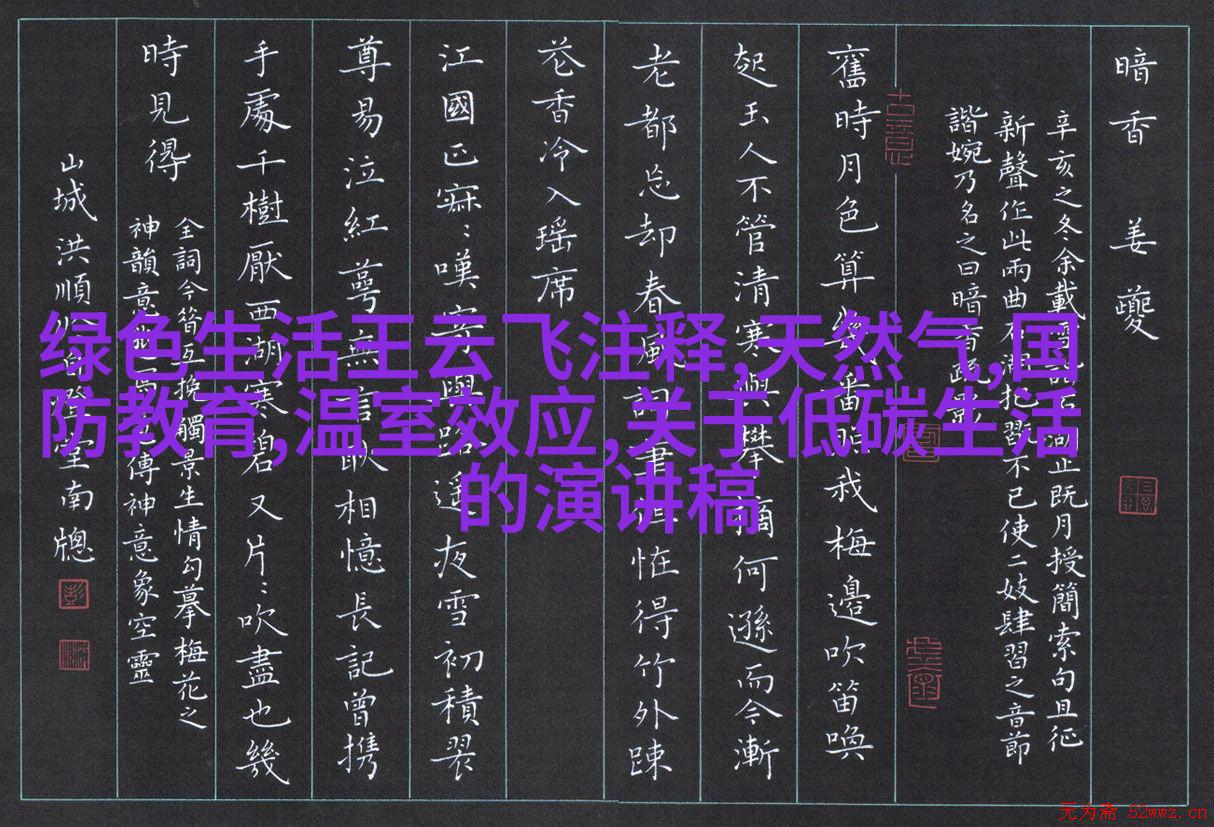 暗香 姜夔
辛亥之冬余載雪詣石湖止既月授簡索句且征
新聲作此兩曲石湖把翫不已使二妓肆習之音節
諧婉乃名之曰暗香疏影
舊時月色算幾番照我梅邊吹笛喚
起玉人不管清寒與攀摘何遜而今漸
老都忘却春風詞筆但怪得竹外疎
花香冷入瑶席
江國正寂寂嘆寄與路遥夜雪初積翠
尊易泣紅萼無言耿相憶長記曾携
手處千樹壓西湖寒碧又片片吹盡也幾
時見得
全詞今昔互挽觸景生情勾摹梅花之
傳神意象空靈
山城洪順
堂南牕
绿色生活王云飞注释,天然气,国
防教育,温室效应,关于低碳生活
的演讲稿
无为斋 52wwz.cn